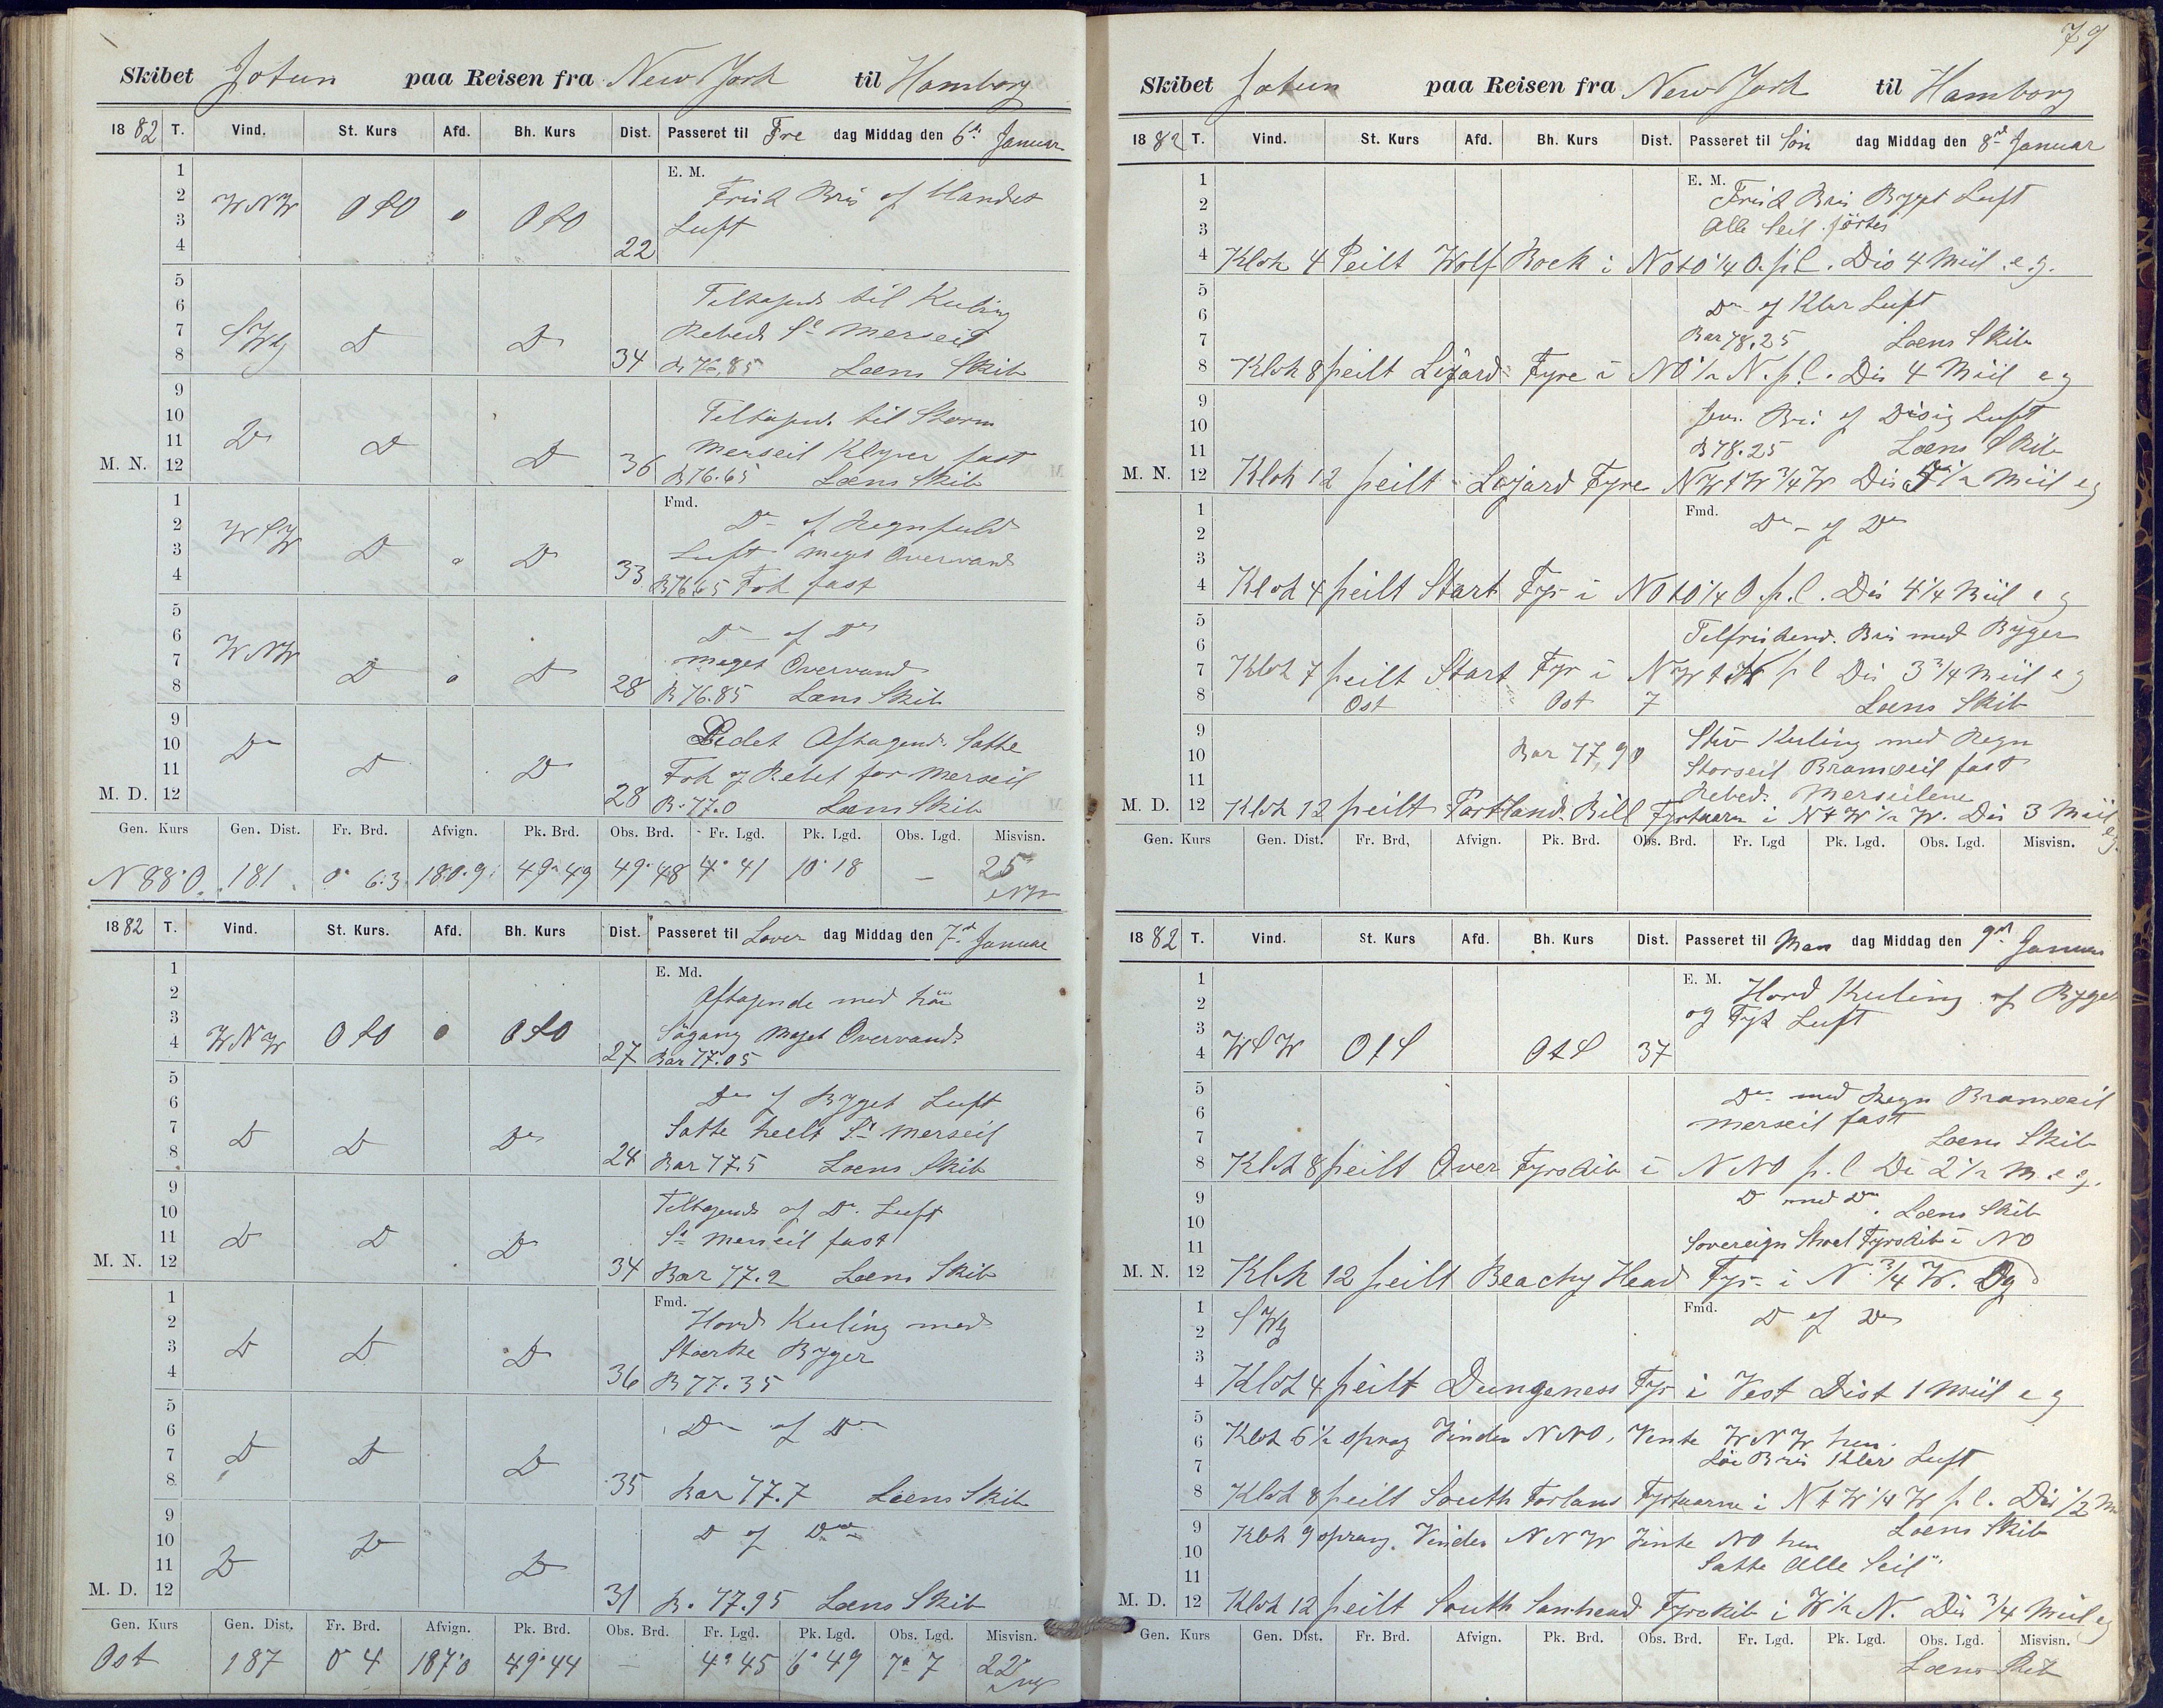 79
Skibet Jotun paa Reisen fra New York til Hamborg
1882 T. Vind. St. Kurs Afd. Bh. Kurs Dist. Passeret til Fre dag Middag den 6te Januar
E. M.
1
2
3
4
Frisk Bris og blandet
WNW OSO 0 OSO
22 Luft
5
6
7
8
Tiltagende til Kuling
Rebede St Merseil
SWlg D D
34 B 76,85 Læns Skib
9
10
11
M. N. 12
Tiltagende til Storm
D D D
Merseil Klyver fast
36 B 76.65 Læns Skib
Fmd.
1
2
3
4
Do og Regnfuld
WSW D 0 D
Luft meget Overvand
33 B 76.65 Fok fast
5
6
7
8
Do og Do
WNW D 0 D
meget Overvand
28 B 76.85 Læns Skib
9
10
11
M. D. 12
Lidet Aftagende Satte
Do D D
Fok og Rebet for Merseil
28 B. 77.0 Læns Skib
Gen. Kurs Gen. Dist. Fr. Brd. Afvign. Pk. Brd. Obs. Brd. Fr. Lgd. Pk. Lgd. Obs. Lgd. Misvisn.
N 88° O 181 0° 6.3 180.9 49° 49 49° 48 4° 41 10° 18 — 25
1882 T. Vind. St. Kurs. Afd. Bh. Kurs Dist. Passeret til Løver dag Middag den 7de Januar
E. Md.
1
2
3
4
Aftagende med høi
WNW OSO 0 OSO
Søgang Meget Overvand
27 Bar 77.05
5
6
7
8
Do og Byget Luft
D D Do
Satte heelt St Merseil
24 Bar 77.5 Læns Skib
9
10
11
M. N. 12
Tiltagende og Do Luft
D D D
St Merseil fast
34 Bar 77.2 Læns Skib
Fmd.
1
2
3
4
Hord Kuling med
D D D
Stærke Byger
36 B 77.35
5
6
7
8
Do og Do
D D D
35 Bar 77.7 Læns Skib
9
10
11
M. D. 12
D og Do
D D D
31 B. 77.95 Læns Skib
Gen. Kurs Gen. Dist. Fr. Brd. Afvign. Pk. Brd. Obs. Brd. Fr. Lgd. Pk. Lgd. Obs. Lgd. Misvisn.
Ost 187 0 4 187.0 49° 44 — 4° 45 6° 49 7° 7 22
Skibet Jotun paa Reisen fra New York til Hamborg
1882 T. Vind. St. Kurs Afd. Bh. Kurs Dist. Passeret til Søn dag Middag den 8de Januar
E. M.
1
2
3
4
Frisk Bris Bygget Luft
Alle Seil førtes
Klok 4 Peilt Wolf Rock i NOtO 1/4 O. p.C. Dis 4 Miil e.g.
5
6
7
8
Do og Klar Luft
Bar 78.25 Læns Skib
Klok 8 peilt Lizard Fyre i NO 1/2 N. p.C. Dis 4 Miil e g
9
10
11
M. N. 12
Jevn Bris og Disig Luft
B 78.25 Læns Skib
Klok 12 peilt Lizard Fyre NWtW 3/4 W Dis 1/2 Miil e g
Fmd.
1
2
3
4
Do og Do
Klok 4 peilt Start Fyr i NOtO 1/4 O. p.C. Dis 4 1/4 Miil e g
5
6
7
8
Tilfriskende Bris med Byger
Klok 7 peilt Start Fyr i NWtW p C Dis 3 3/4 Miil e g
Ost Ost 7 Læns Skib
9
10
11
M. D. 12
Stiv Kuling med Regn
Bar 77,90 Storseil Bramseil fast
Rebede Merseilene
Klok 12 peilt Portland Bill Fyrtaarn i NtW 1/2 W. Dis 3 Miil eg.
Gen. Kurs Gen. Dist. Fr. Brd, Afvign. Pk. Brd. Obs. Brd. Fr. Lgd Pk. Lgd. Obs. Lgd. Misvisn.
1882 T. Vind. St. Kurs Afd. Bh. Kurs Dist. Passeret til Man dag Middag den 9de Januar
E. M.
1
2
3
4
Hord Kuling og Byger
og Tyk Luft
WSW OtS OtS 37
5
6
7
8
Do med Regn Bramseil
Merseil fast
Læns Skib
Klok 8 peilt Over Fyrskib i NNO p. C Dis 2 1/2 M e g.
9
10
11
M. N. 12
D med Do. Læns Skib
Sovereign Shoal Fyrskib i NO
Klok 12 peilt Beachy Head Fyr i N. 3/4 W. Og
Fmd.
1
2
3
4
SWlg D og Do
Klok 4 peilt Dungeness Fyr i Vest Dist 1 Miil e g
5
6
7
8
Klok 6 1/2 sprag Vinden NNO, Vente WNW hen.
Løi Bris Klar Luft
Klok 8 peilt South Forland Fyrtaarne i NtW 1/4 W p C. Dis 1/2 M
9
10
11
M. D. 12
Læns Skib
Klok 9 sprang Vinden NNW Vente NO hen
Satte Alle Seil
Klok 12 peilt South Sanhead Fyrskib i W 1/2 N. Dis 3/4 Miil eg
Gen. Kurs Gen. Dist. Fr. Brd. Afvign. Pk. Brd. Obs. Brd. Fr. Lgd. Pk. Lgd. Obs. Lgd. Misvisn.
Læns Skib